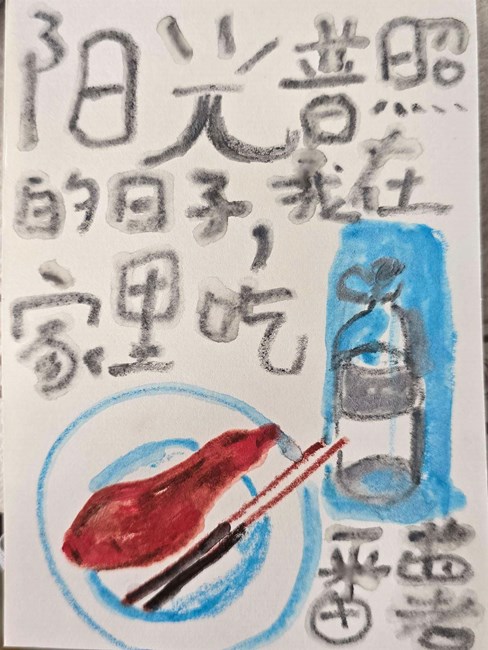 阳光普照
的日子，我在
家里吃
番薯